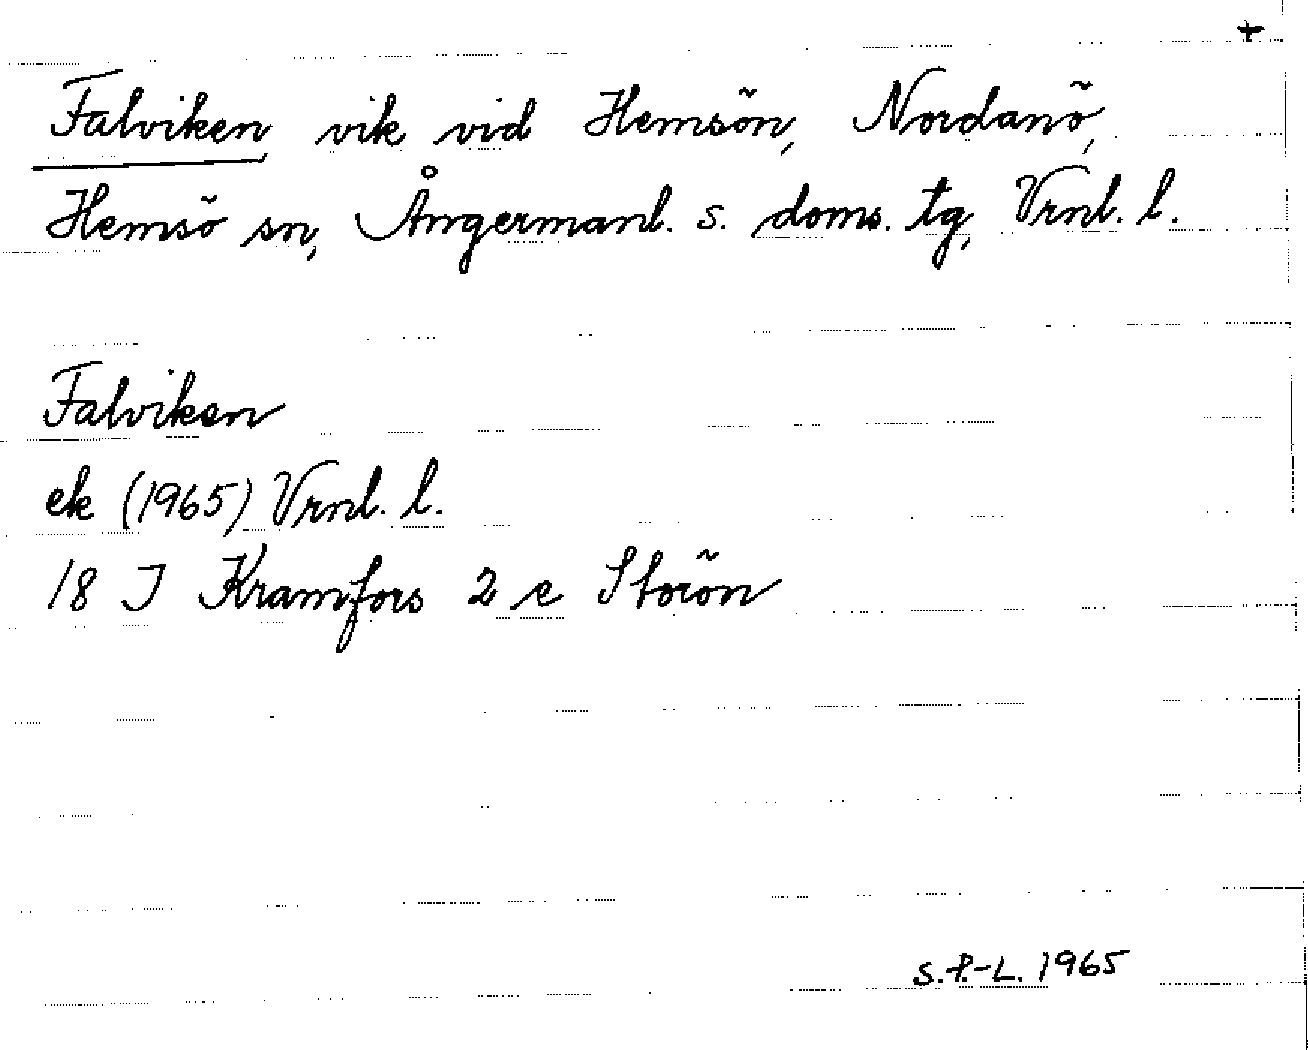 +
Falviken vik vid Hemsön, Nordanö,
Hemsö sn, Ångermanl. s. doms. tg, Vrnl. l.
Falviken
ek (1965) Vrnl. l.
18 J Kramfors 2 c Storön
S.P-L. 1965